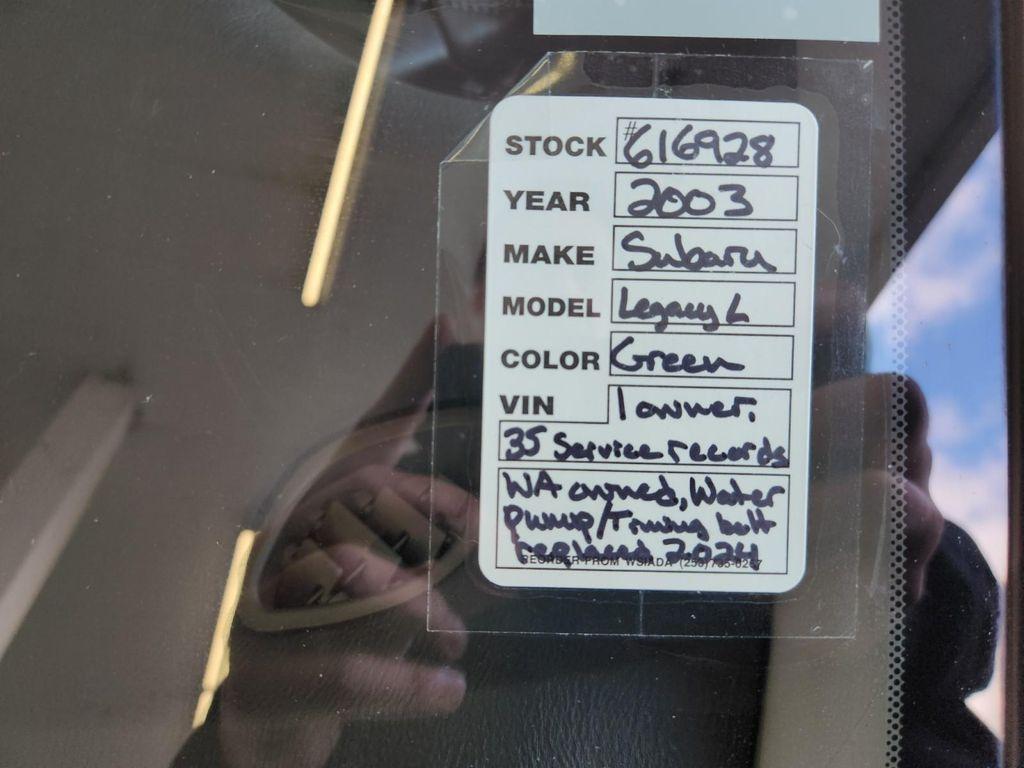 STOCK #616928
YEAR 2003
MAKE Subaru
MODEL Legacy L
COLOR Green
VIN 1 owner.
35 Service records
WA owned, Water
pump/Timing belt
replaced 2024
REORDER FROM WSIADA (253)735-0267